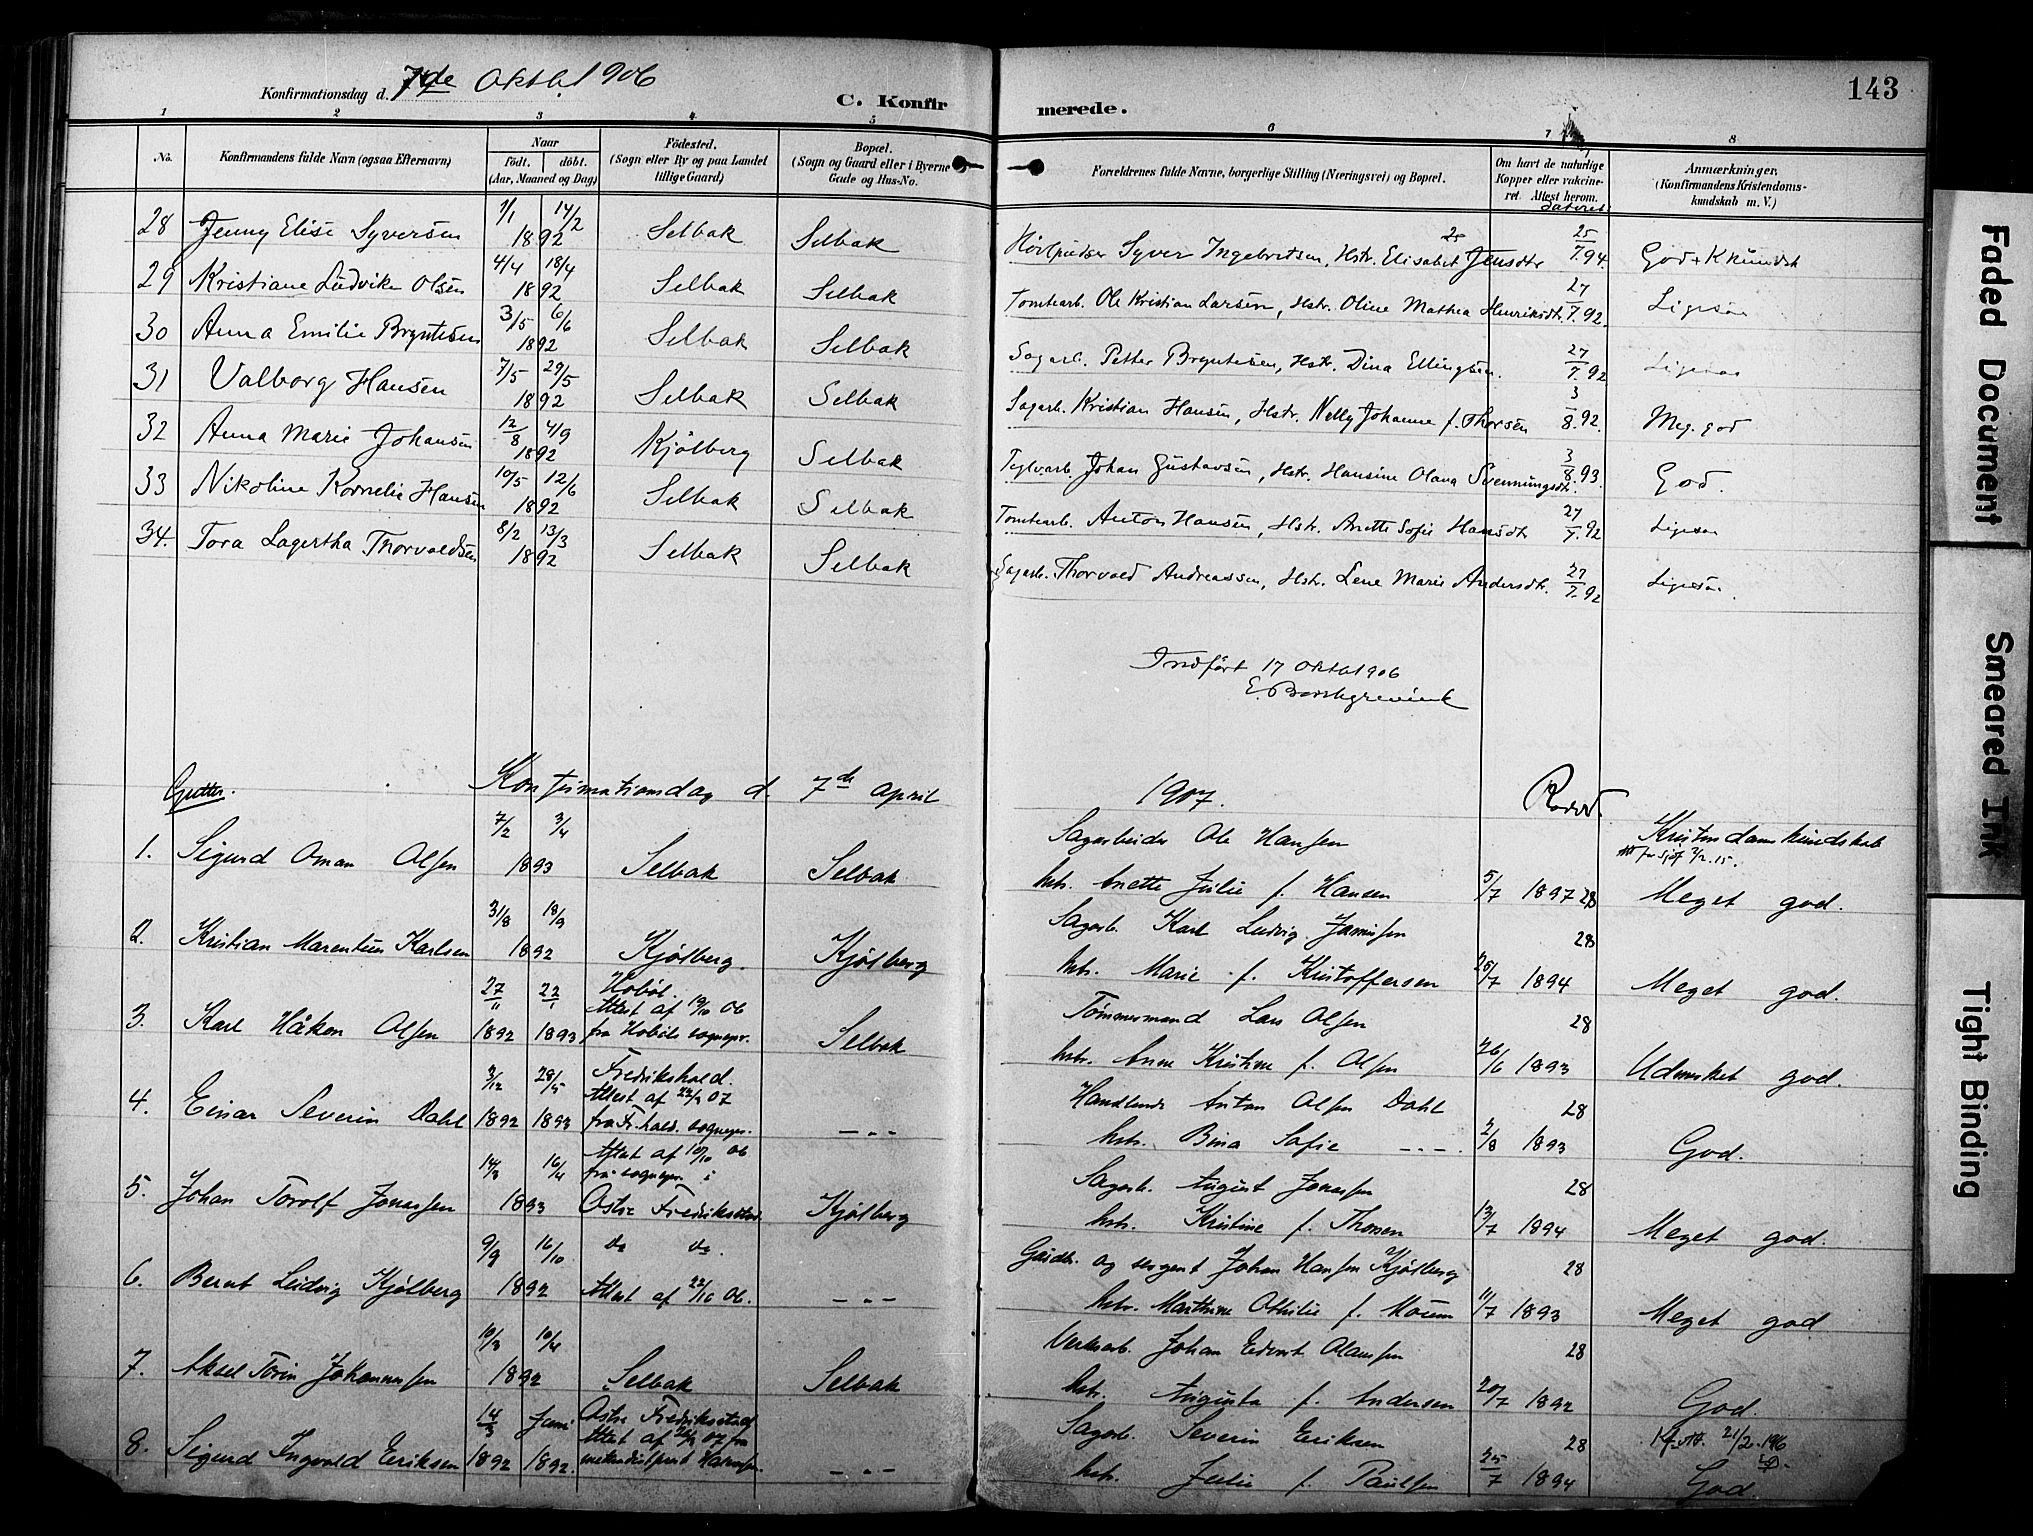 Konfirmationsdag d. 7de Oktbl 1906
C. Konfirmerede.
143
1 2 3 4 5 6 7 8
No.
Konfirmandens fulde Navn (ogsaa Efternavn)
Naar
födt. döbt.
(Aar, Maaned og Dag)
Födested.
(Sogn eller By og paa Landet
tillige Gaard)
Bopæl.
(Sogn og Gaard eller i Byerne
Gade og Hus-No.
Forældrenes fulde Navne, borgerlige Stilling (Næringsvei) og Bopæl.
Om havt de naturlige
Kopper eller vakcine-
ret Attest herom.
Anmærkninger.
(Konfirmandens Kristendoms-
kundskab m. V.)
28 Jenny Elise Syversen 1/1 14/2 1892 Selbak Selbak Syver Ingebretsen, Hstr. Elisabet Jensdtr 25/7.94. God + Kkundsk
29 Kristiane Ludvike Olsen 4/4 18/4 1892 Selbak Selbak Tomtearb. Ole Kristian Larsen, Hstr. Oline Mathea Henriksdt. 27/7.92. Ligesaa
30 Anna Emilie Bryntesen 3/5 6/6 1892 Selbak Selbak Sagarb. Petter Bryntesen, Hstr. Dina Ellingsen. 27/7.92 Ligesaa
31 Valborg Hansen 7/5 29/5 1892 Selbak Selbak Sagarb. Kristian Hansen, Hstr. Nelly Johanne f. Thorsen 3/8.92. Meg. god
32 Anna Marie Johansen 12/8 4/9 1892 Kjölberg Selbak Teglvarb. Johan Gustavsen, Hstr. Hansine Olava Svennungsdt. 3/8.93. God.
33 Nikoline Kornelie Hansen 10/5 12/6 1892 Selbak Selbak Tomtearb. Anton Hansen, Hstr. Anette Sofie Hansdt 27/7.92 Ligesaa
34. Tora Lagertha Thorvaldsen 8/2 13/3 1892 Selbak Selbak Sagarb. Thorvald Andreassen, Hstr. Lene Marie Andersdtr. 27/7.92 Ligesaa.
Indført 17 Oktbl 1906
E. Borchgrevink
Gutter. Konfirmationsdag d. 7de April 1907.
Kristendomskundskab
1. Sigurd Oman Olsen 7/2 3/4 1893 Selbak Selbak Sagarbeider Ole Hansen
hstr. Anette Julie f. Hansen 5/7 1897 28 Meget god.
2. Kristian Marentius Karlsen 31/8 18/9 1892 Kjølberg. Kjølberg Sagarb. Karl Ludvig 28
hstr. Marie f. Kristoffersen 25/7 1894 Meget god.
3. Karl Håken Olsen 27/11 1892 22/1 1893 Hobøl. Attest af 19/10 06 fra Hobøls sognepr. Selbak Tömmermand Lars Olsen 28
hstr. Anne Kristine f. Olsen 26/6 1893 Udmerket god.
4. Einar Severin Dahl 2/12 1892 28/5 1893 Fredrikshald. Attest af 22/2 07 fra Fr.hald. sognepr. — „ — Handlende Anton Olsen Dahl 28
hstr. Bina Sofie — „ —. 2/8 1893 God.
5. Johan Torolf Jonassen 14/3 16/4 1893 Attest af 10/10 06 fra sognepr. i Østre Fredriksstad Kjølberg Sagarb. August Jonassen 28
hstr. Kristine f. Thorsen 13/7 1894 Meget god.
6. Bernt Ludvig Kjølberg 9/9 16/10 1892 do do. Attest af 22/10 06. — „ — Gårdbr. og sergent Johan Hansen Kjølberg 28
hstr. Marthine Othilie f. Moum 11/7 1893 Meget god
7. Aksel Torin Johannessen 10/3 10/4 1892 Selbak Selbak Verksarb. Johan Edvart Olaussen 28
hstr. Augusta f. Andersen 20/7 1892 God.
8. Sigurd Ingvald Eriksen 14/3 1892 Juni 1892. Østre Fredriksstad Attest af 26/2 07 fra — „ — Sagarb. Severin Eriksen 28
hstr. Julie f. Paulsen 25/7 1894 God
Faded Document
Smeared Ink
Tight Binding